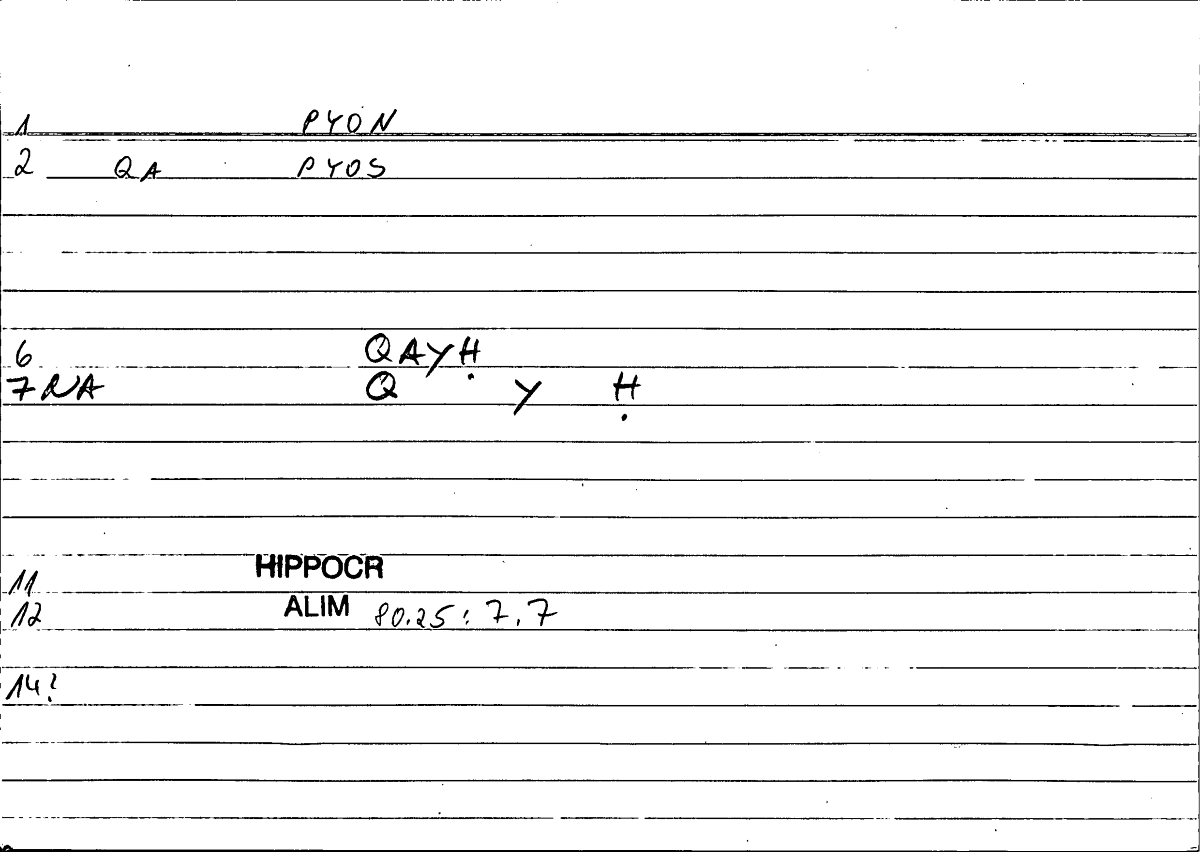 1 PYON
2 QA PYOS
6 QAYḤ
7 NA Q Y Ḥ
11 HIPPOCR
12 ALIM 80.25: 7.7
14?